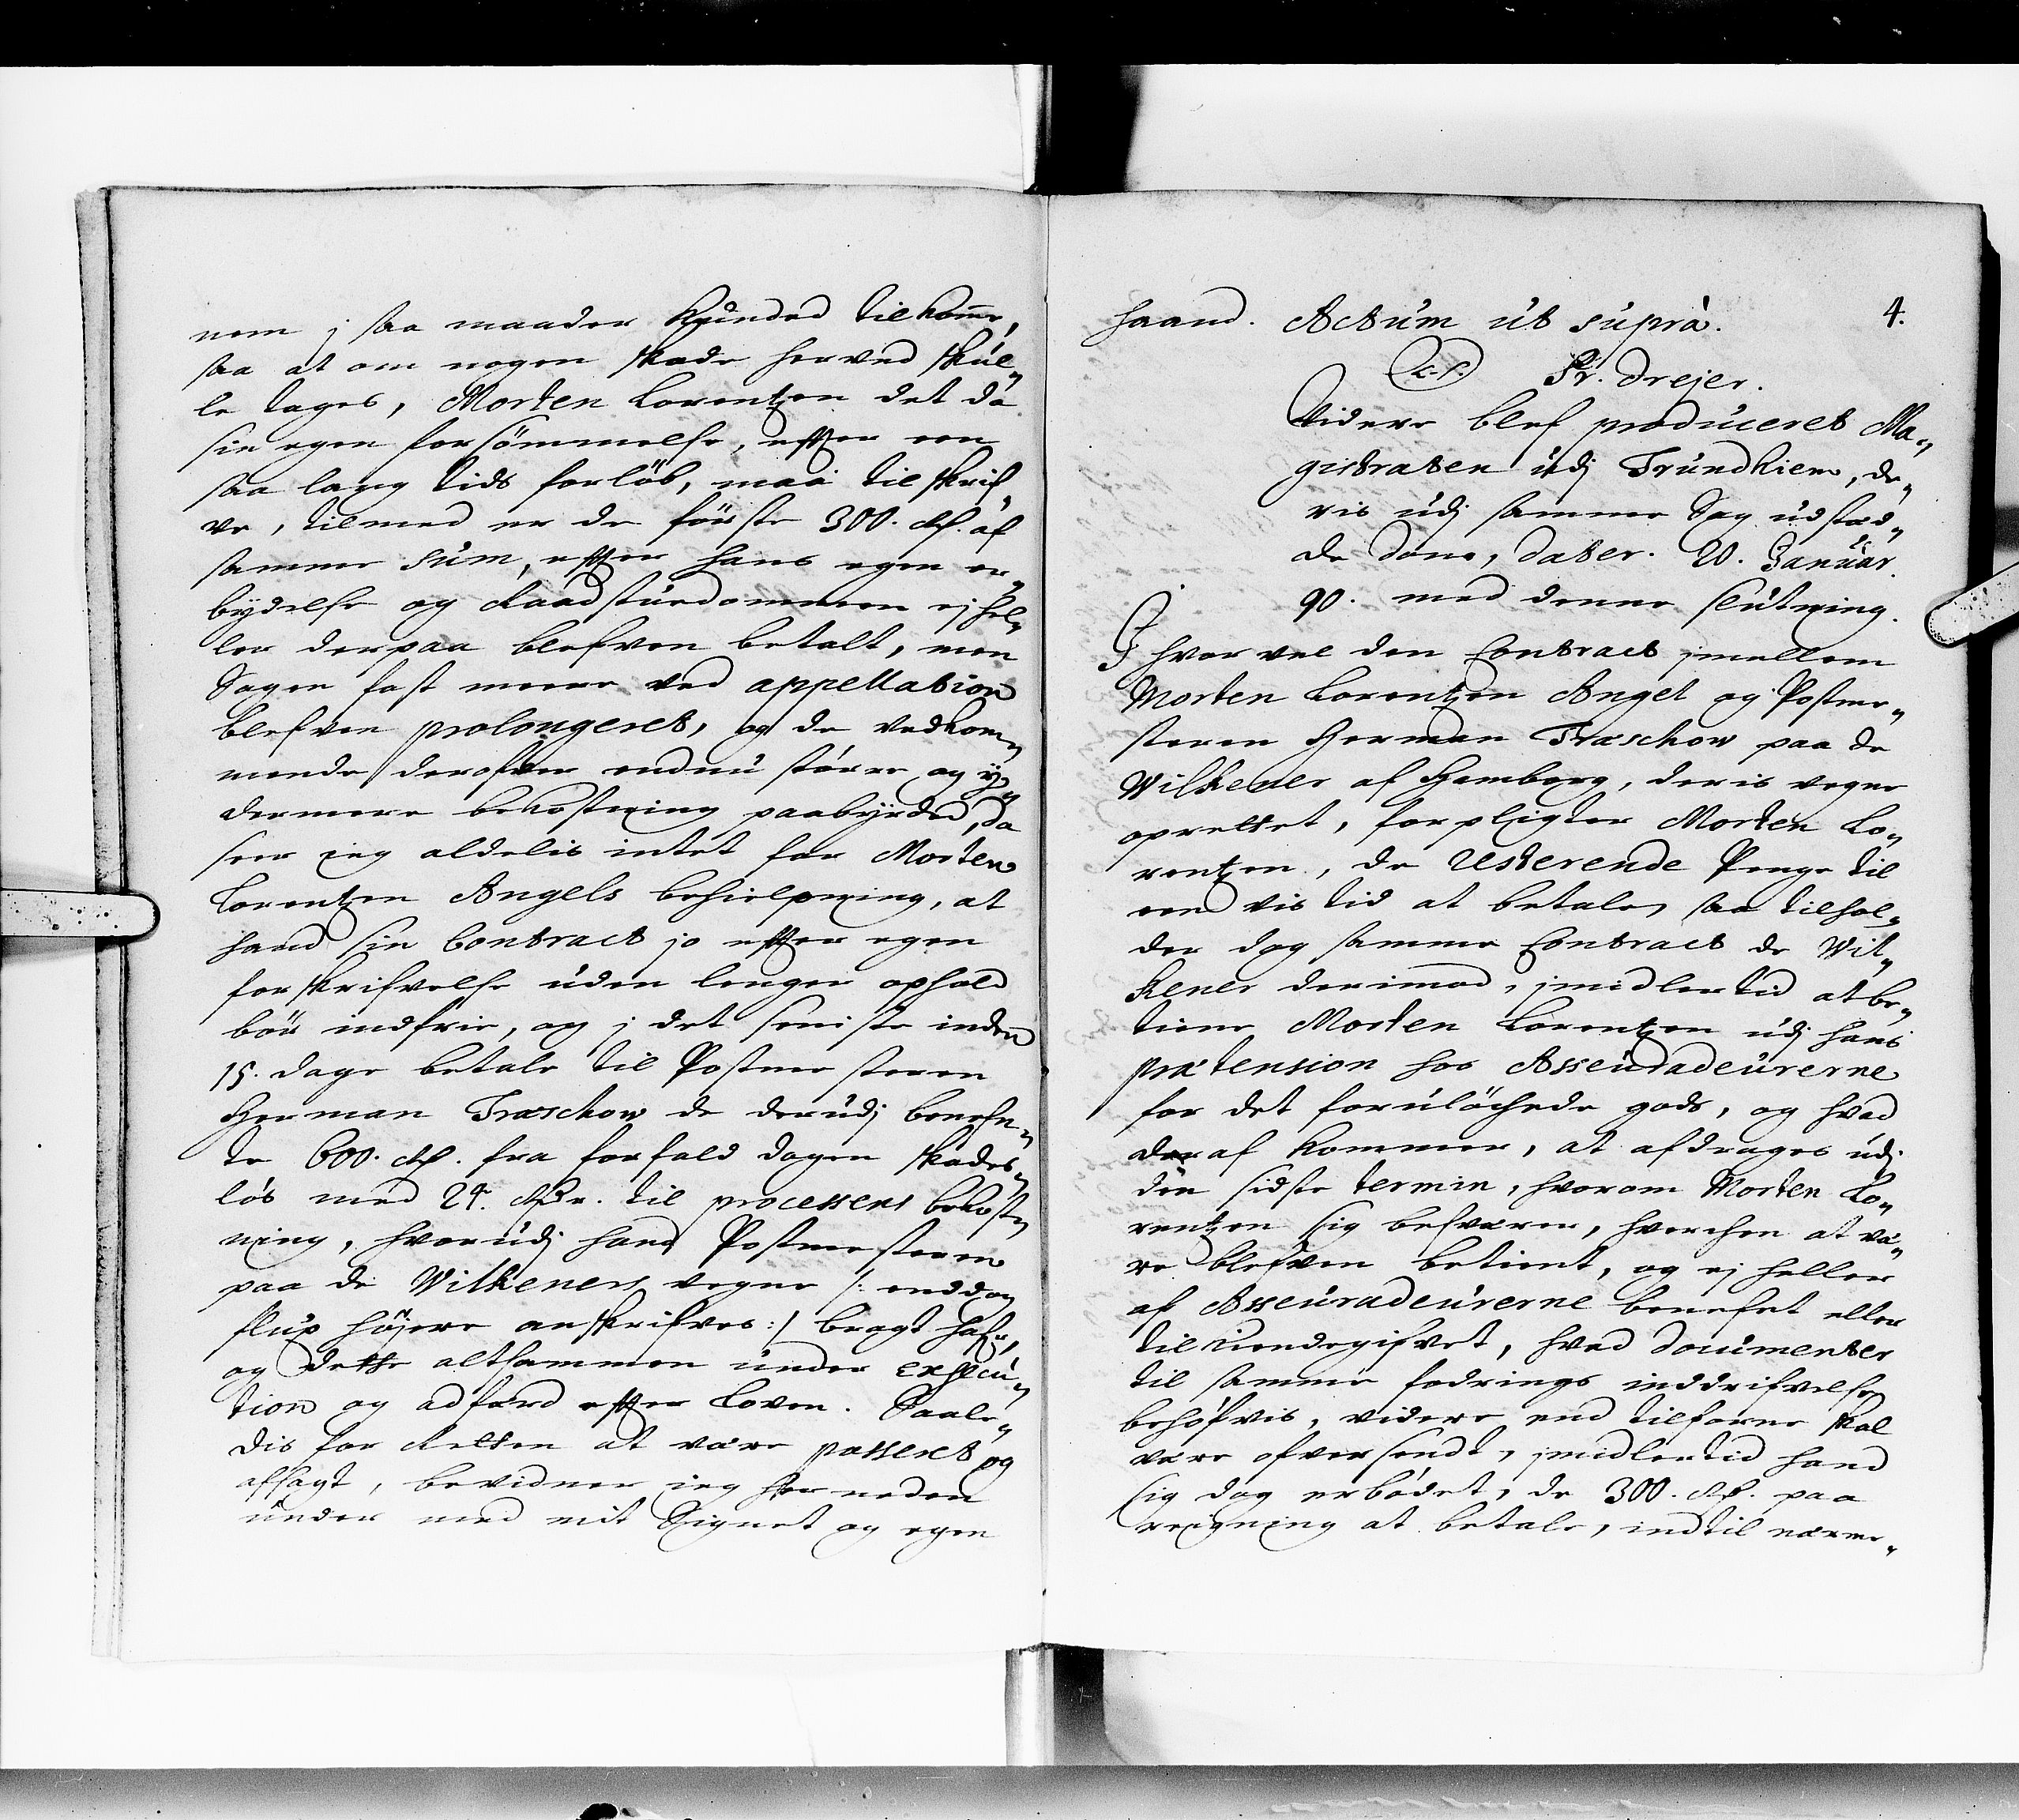 nem j saa maader Kunded tilkome,
saa at om nogen skade herved skul„
le tages, Morten Lorentzen det da
sin egen forsömmelse, effter een
saa lang tids forlöb, maa tilskrif„
ve, tilmed er de förste 300. Rd. af
samme Sum, effter hans egen er„
bydelse og Raadstuedommen ej hel„
ler derpaa blefven betalt, men
Sagen fast meere ved appellation
blefven prolongeret, og de vedkom„
mende derofver endnu större og ÿ„
dermere bekostning paabÿrded, da
seer ieg aldelis intet for Morten
Lorentzen Angels behielpning, at
hand sin Contract jo effter egen
forskrifvelse uden lenger ophold
bör indfrie, og j det seniste inden
15. dage betale til Postmesteren
Herman Træschow de derudj benefn„
te 600. Rd. fra forfald dagen skades„
lös med 24. Rdr. til processens bekost„
ning, hvorudj hand Postmesteren
paa de Wilkeners vegne /: enddog
flux höjere anskrifves :/ bragt hafr,
og dette altsammen under execu„
tion og adfærd effter Loven. Saale„
dis for Retten at være passeret og
afsagt, bevidner ieg her neden
under med mit Signet og egen
4.
haand. Actum ut supra.
L.S. Fr. Drejer.
Videre blef produceret Ma„
gistraten udj Trundhiem, de„
ris udj samme Sag udstæd„
de dom, dater. 20. Januar.
90. med denne slutning.
I hvor vel den Contract jmellem
Morten Lorentzen Angel og Postme„
steren Herman Træschow paa de
Wilkener af Hamborg, deris vegne
oprettet, forpligter Morten Lo„
rentzen, de resterende Penge til
een vis tid at betale, saa tilhol„
der dog samme Contract de Wil„
kener derimod, jmidlertid at be„
tiene Morten Lorentzen udj hans
prætension hos Asseuradeurerne
for det forulöchede gods, og hvad
deraf kommer, at afdrages udj
den sidste termin, hvorom Morten Lo„
rentzen sig besværer, hverchen at væ„
re blefven betient, og ej heller
af Asseuradeurerne benefnt eller
tilkiendegifvet, hvad documenter
til samme fodrings inddrifvelse
behöfvis, videre end tilforne skal
være ofversendt, jmidlertid hand
sig dog erbödet, de 300. Rd. paa
reigning at betale, indtil nærme„